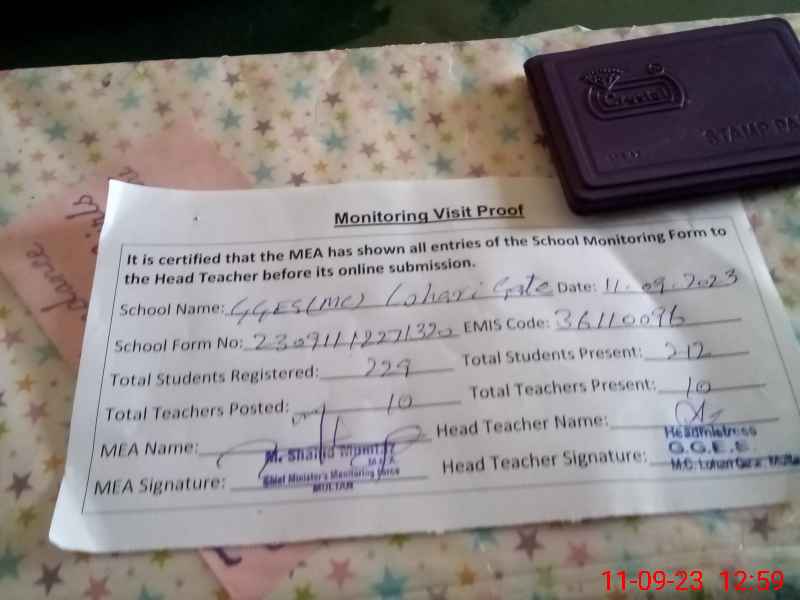 Crystal
STAMP PAD
Monitoring Visit Proof
It is certified that the MEA has shown all entries of the School Monitoring Form to
the Head Teacher before its online submission.
School Name: GGES(MC) Lohari Gate Date: 11.09.2023
School Form No: EMIS Code: 36110096
Total Students Registered: 229 Total Students Present: 212
Total Teachers Posted: 10 Total Teachers Present: 10
MEA Name: Head Teacher Name:
M. Shahid Mumtaz
M.E.A
Chief Minister's Monitoring Force
MULTAN
Headmistress
G.G.E.S
M.C. Lohari Gate
MEA Signature: Head Teacher Signature:
11-09-23 12:59